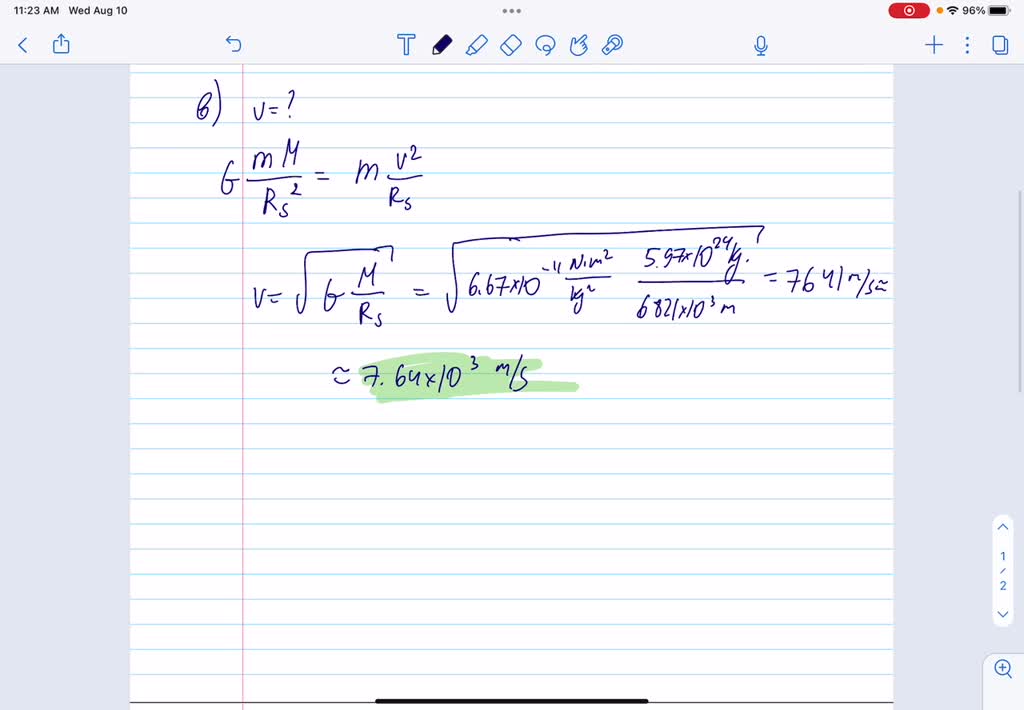 11:23 AM Wed Aug 10
96%
T
b) v=?
G mM/R_s² = m v²/R_s
v = √(G M/R_s) = √(6.67×10⁻¹¹ N·m²/kg² 5.97×10²⁴ kg/6821×10³ m) = 7641 m/s ≈
≈ 7.64×10³ m/s
1
/
2